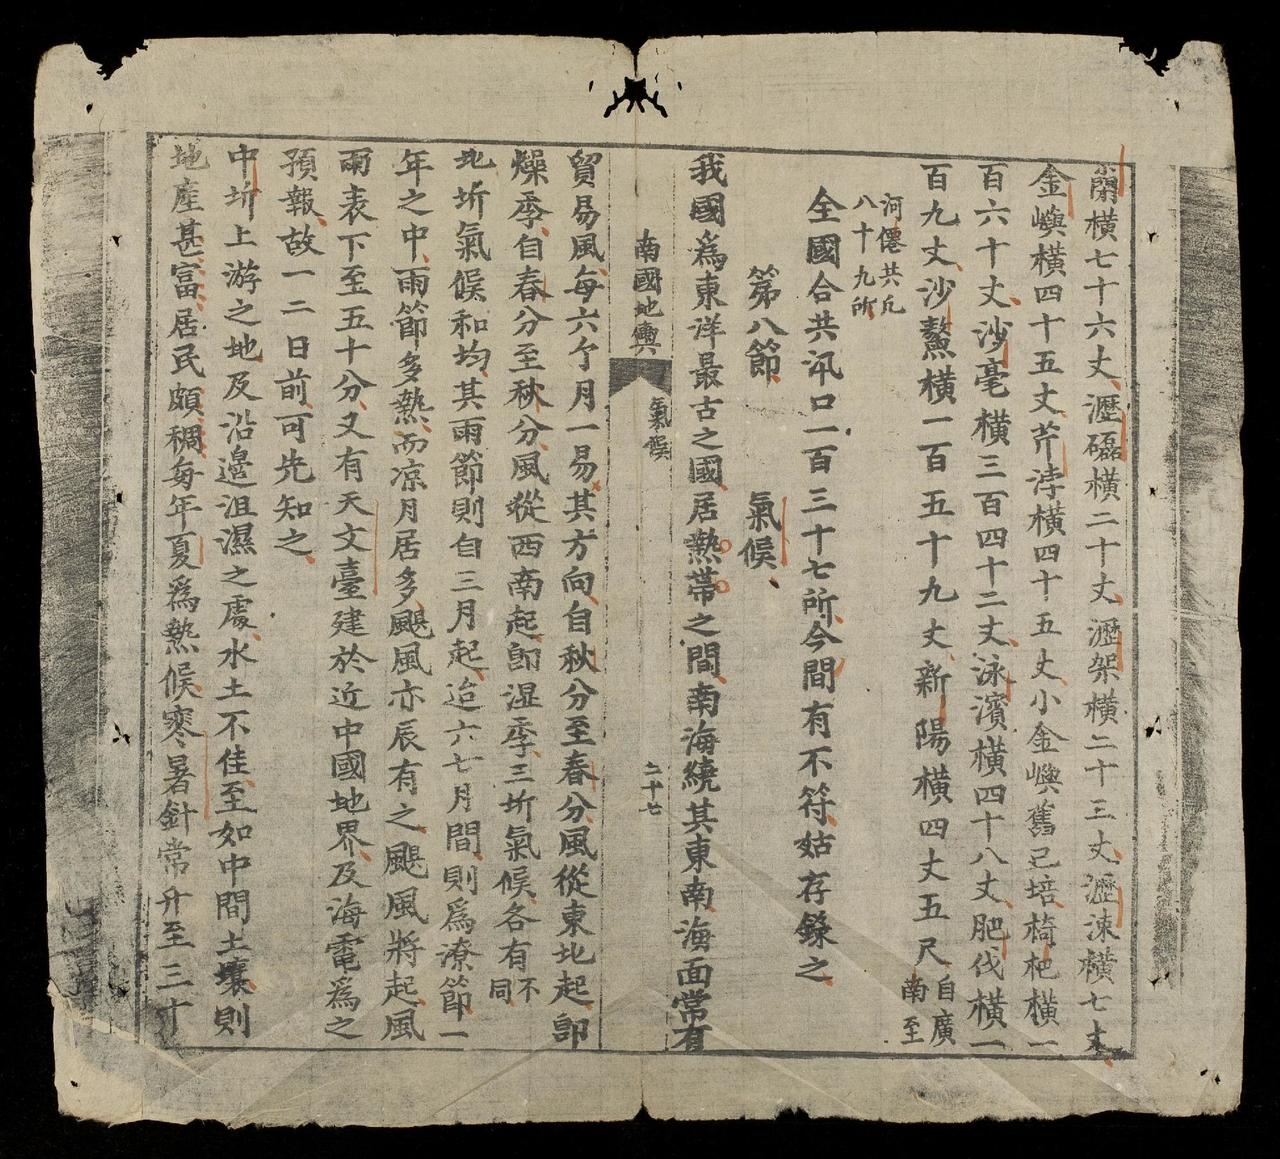 橫七十六丈瀝磊橫二十丈瀝架橫二十三丈瀝涑橫七丈
金嶼橫四十五丈芹浡橫四十五丈小金嶼舊已培椅杷橫一
百六十丈沙毫橫三百四十二丈泳濱橫四十八丈肥伐橫一
百九丈沙鰲橫一百五十九丈新陽橫四丈五尺自廣南至
河僊共凡八十九所
全國合共汛口一百三十七所今間有不符姑存錄之
第八節 氣候
我國爲東洋最古之國居熱帶之間南海繞其東南海面常有
南國地輿 氣候 二十七
貿易風每六个月一易其方向自秋分至春分風從東北起卽
燥季自春分至秋分風從西南起卽湿季三圻氣候各有不同
北圻氣候和均其雨節則自三月起迨六七月間則爲潦節一
年之中雨節多熱而凉月居多颶風亦辰有之颶風將起風
雨表下至五十分又有天文臺建於近中國地界及海電爲之
預報故一二日前可先知之
中圻上游之地及沿邊沮濕之處水土不佳至如中間土壤則
地產甚富居民頗稠每年夏爲熱候寒暑針常升至三十